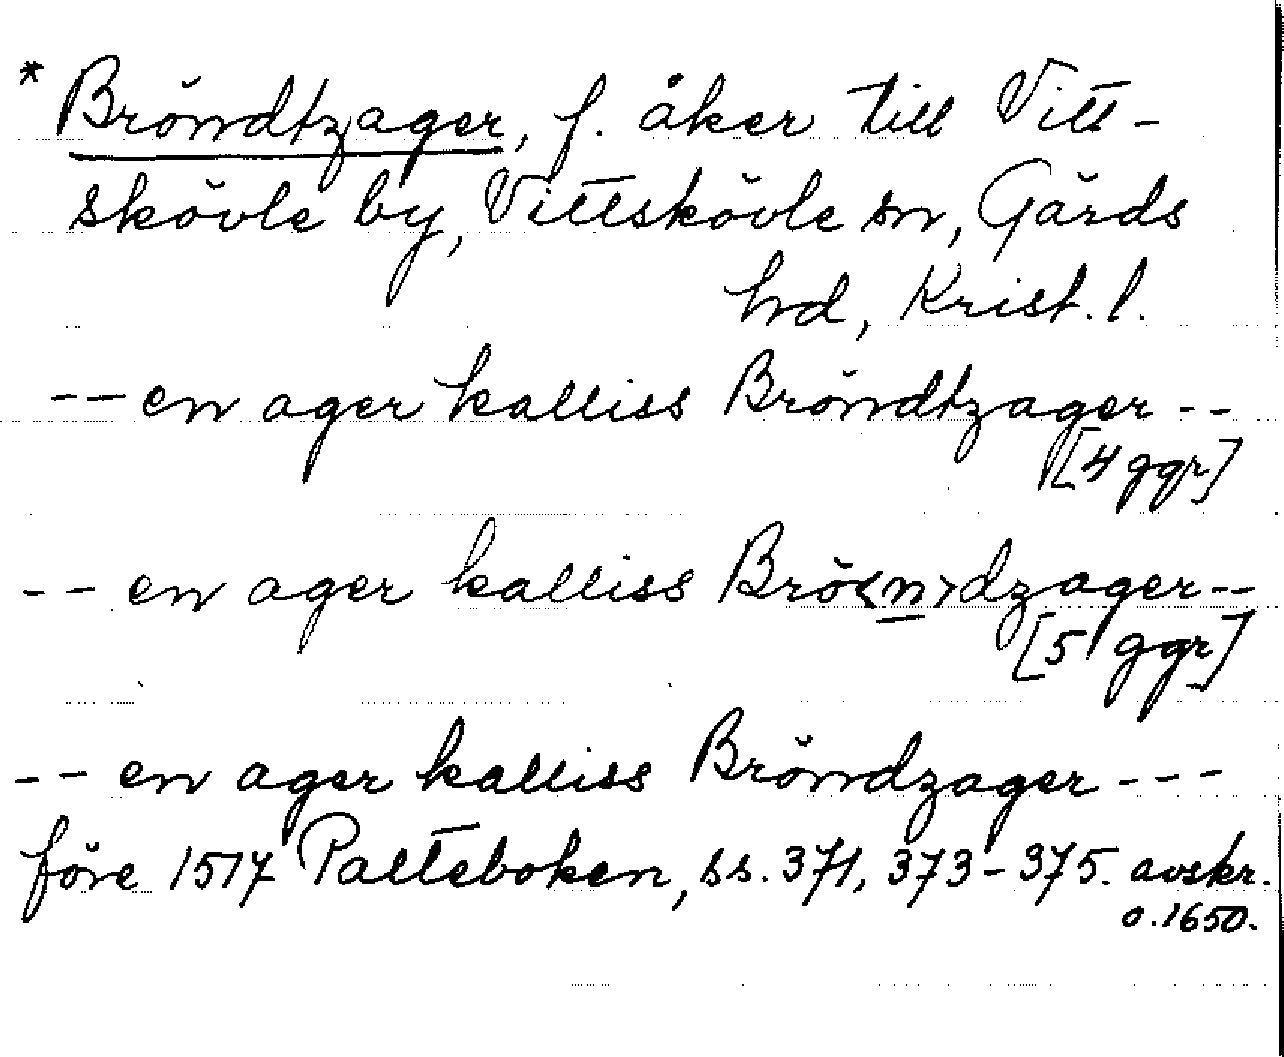 * Bröndtzager, f. åker till Vitt-
skövle by, Vittskövle sn, Gärds
hd, Krist. l.
-- en ager kalliss Bröndtzager --
[4 ggr]
-- en ager kalliss Brö<n>dzager --
[5 ggr]
-- en ager kalliss Bröndzager ---
före 1517 Palteboken, ss. 371, 373-375. avskr.
o. 1650.